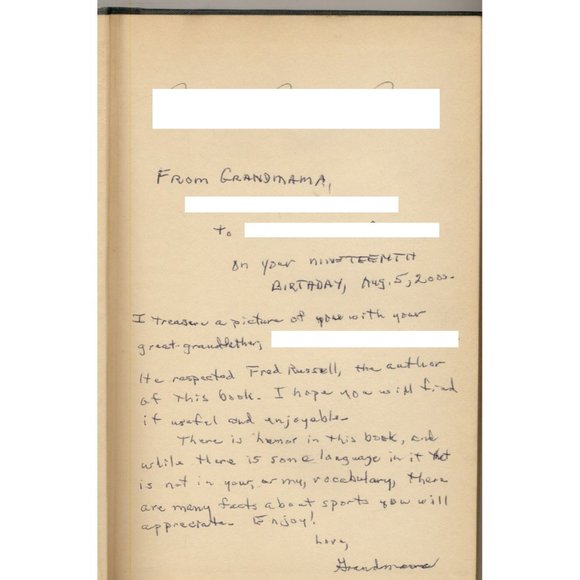 From GRANDMAMA,
to
on your NINETEENTH
BIRTHDAY, Aug. 5, 2000.
I treasure a picture of you with your
great-grandfather,
He respected Fred Russell, the author
of this book. I hope you will find
it useful and enjoyable.
There is humor in this book, and
while there is some language in it that
is not in your, or my, vocabulary, there
are many facts about sports you will
appreciate. Enjoy!
Love,
Grandmama